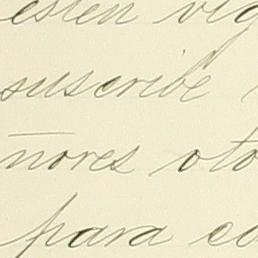 esten vig
suscribe
nores oto
para co